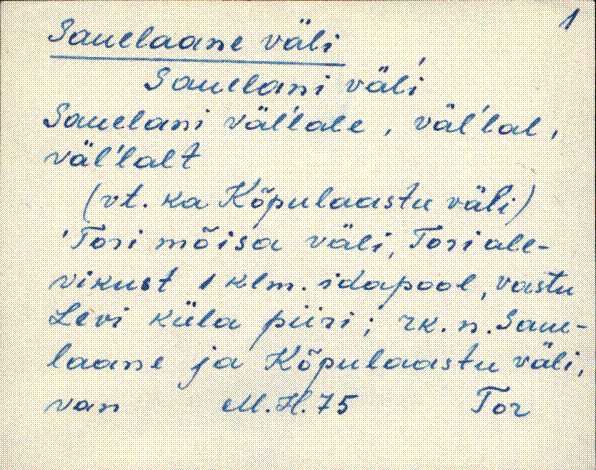 1
Sauelaane väli
Sauelani väli
Sauelani väl'lale, väl'lal,
väl'lalt
(vt. ka Kõpulaastu väli)
'Tori mõisa väli, Tori ale-
vikust 1 klm. idapool, vastu
Levi küla piiri; rk. n. Saue-
laane ja Kõpulaastu väli,
van M.H.75 Tor